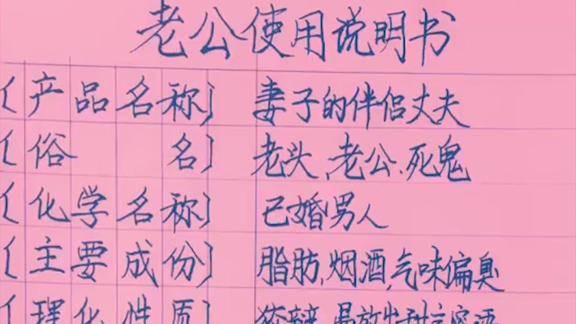 老公使用说明书
〔产品名称〕 妻子的伴侣丈夫
〔俗 名〕 老头、老公、死鬼
〔化学名称〕 已婚男人
〔主要成份〕 脂肪,烟酒,气味偏臭
〔理化性质〕